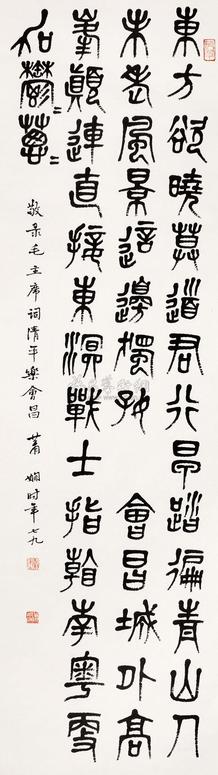 東方欲曉莫道君行早踏徧青山人
未老風景這邊獨好 會昌城外高
峯顛連直接東溟戰士指看南粵更
加鬱〻蔥〻
敬录毛主席词清平樂會昌 蕭嫻时年七九